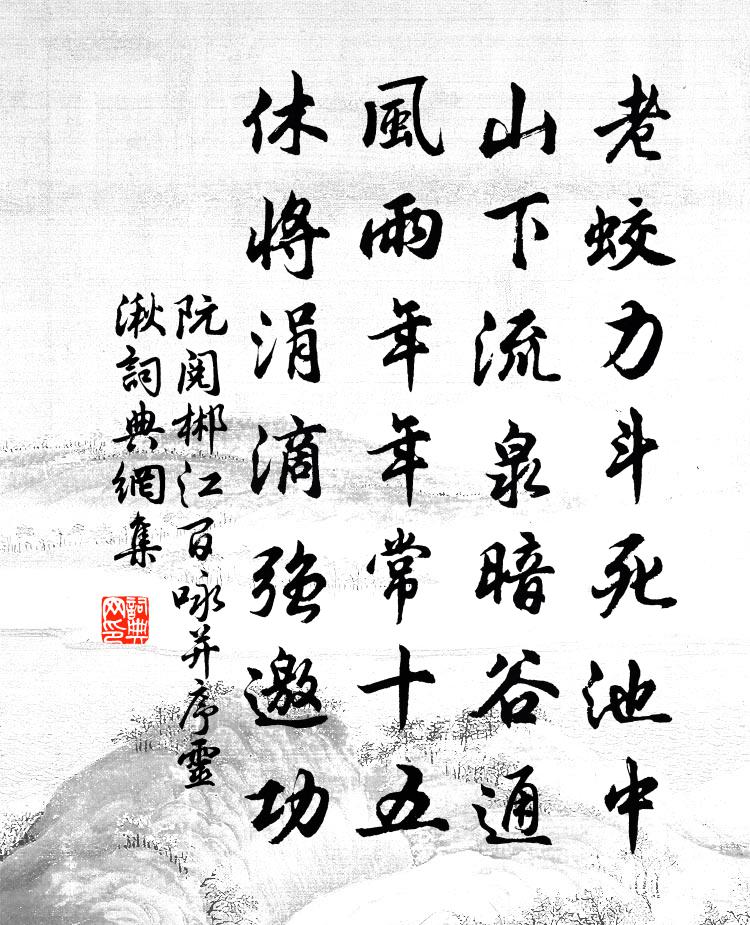 老蛟力斗死池中
山下流泉暗谷通
風雨年年常十五
休將涓滴強邀功
阮閱郴江百咏并序靈
湫詞典網集
詞典
网印